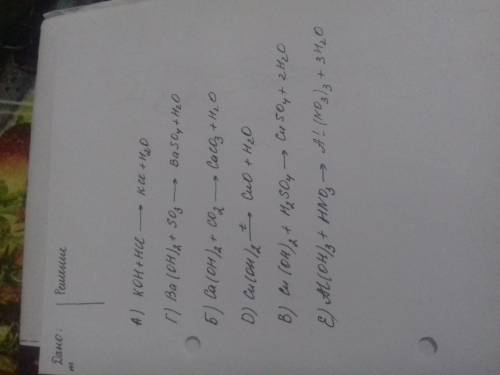 Дано:
m
Решение
А) KOH+HCl → KCl+H2O
Г) Ba(OH)2 + SO3 → BaSO4+H2O
Б) Ca(OH)2 + CO2 → CaCO3 + H2O
D) Cu(OH)2 →t CuO + H2O
В) Cu(OH)2 + H2SO4 → CuSO4 + 2H2O
Е) Al(OH)3 + HNO3 → Al(NO3)3 + 3H2O